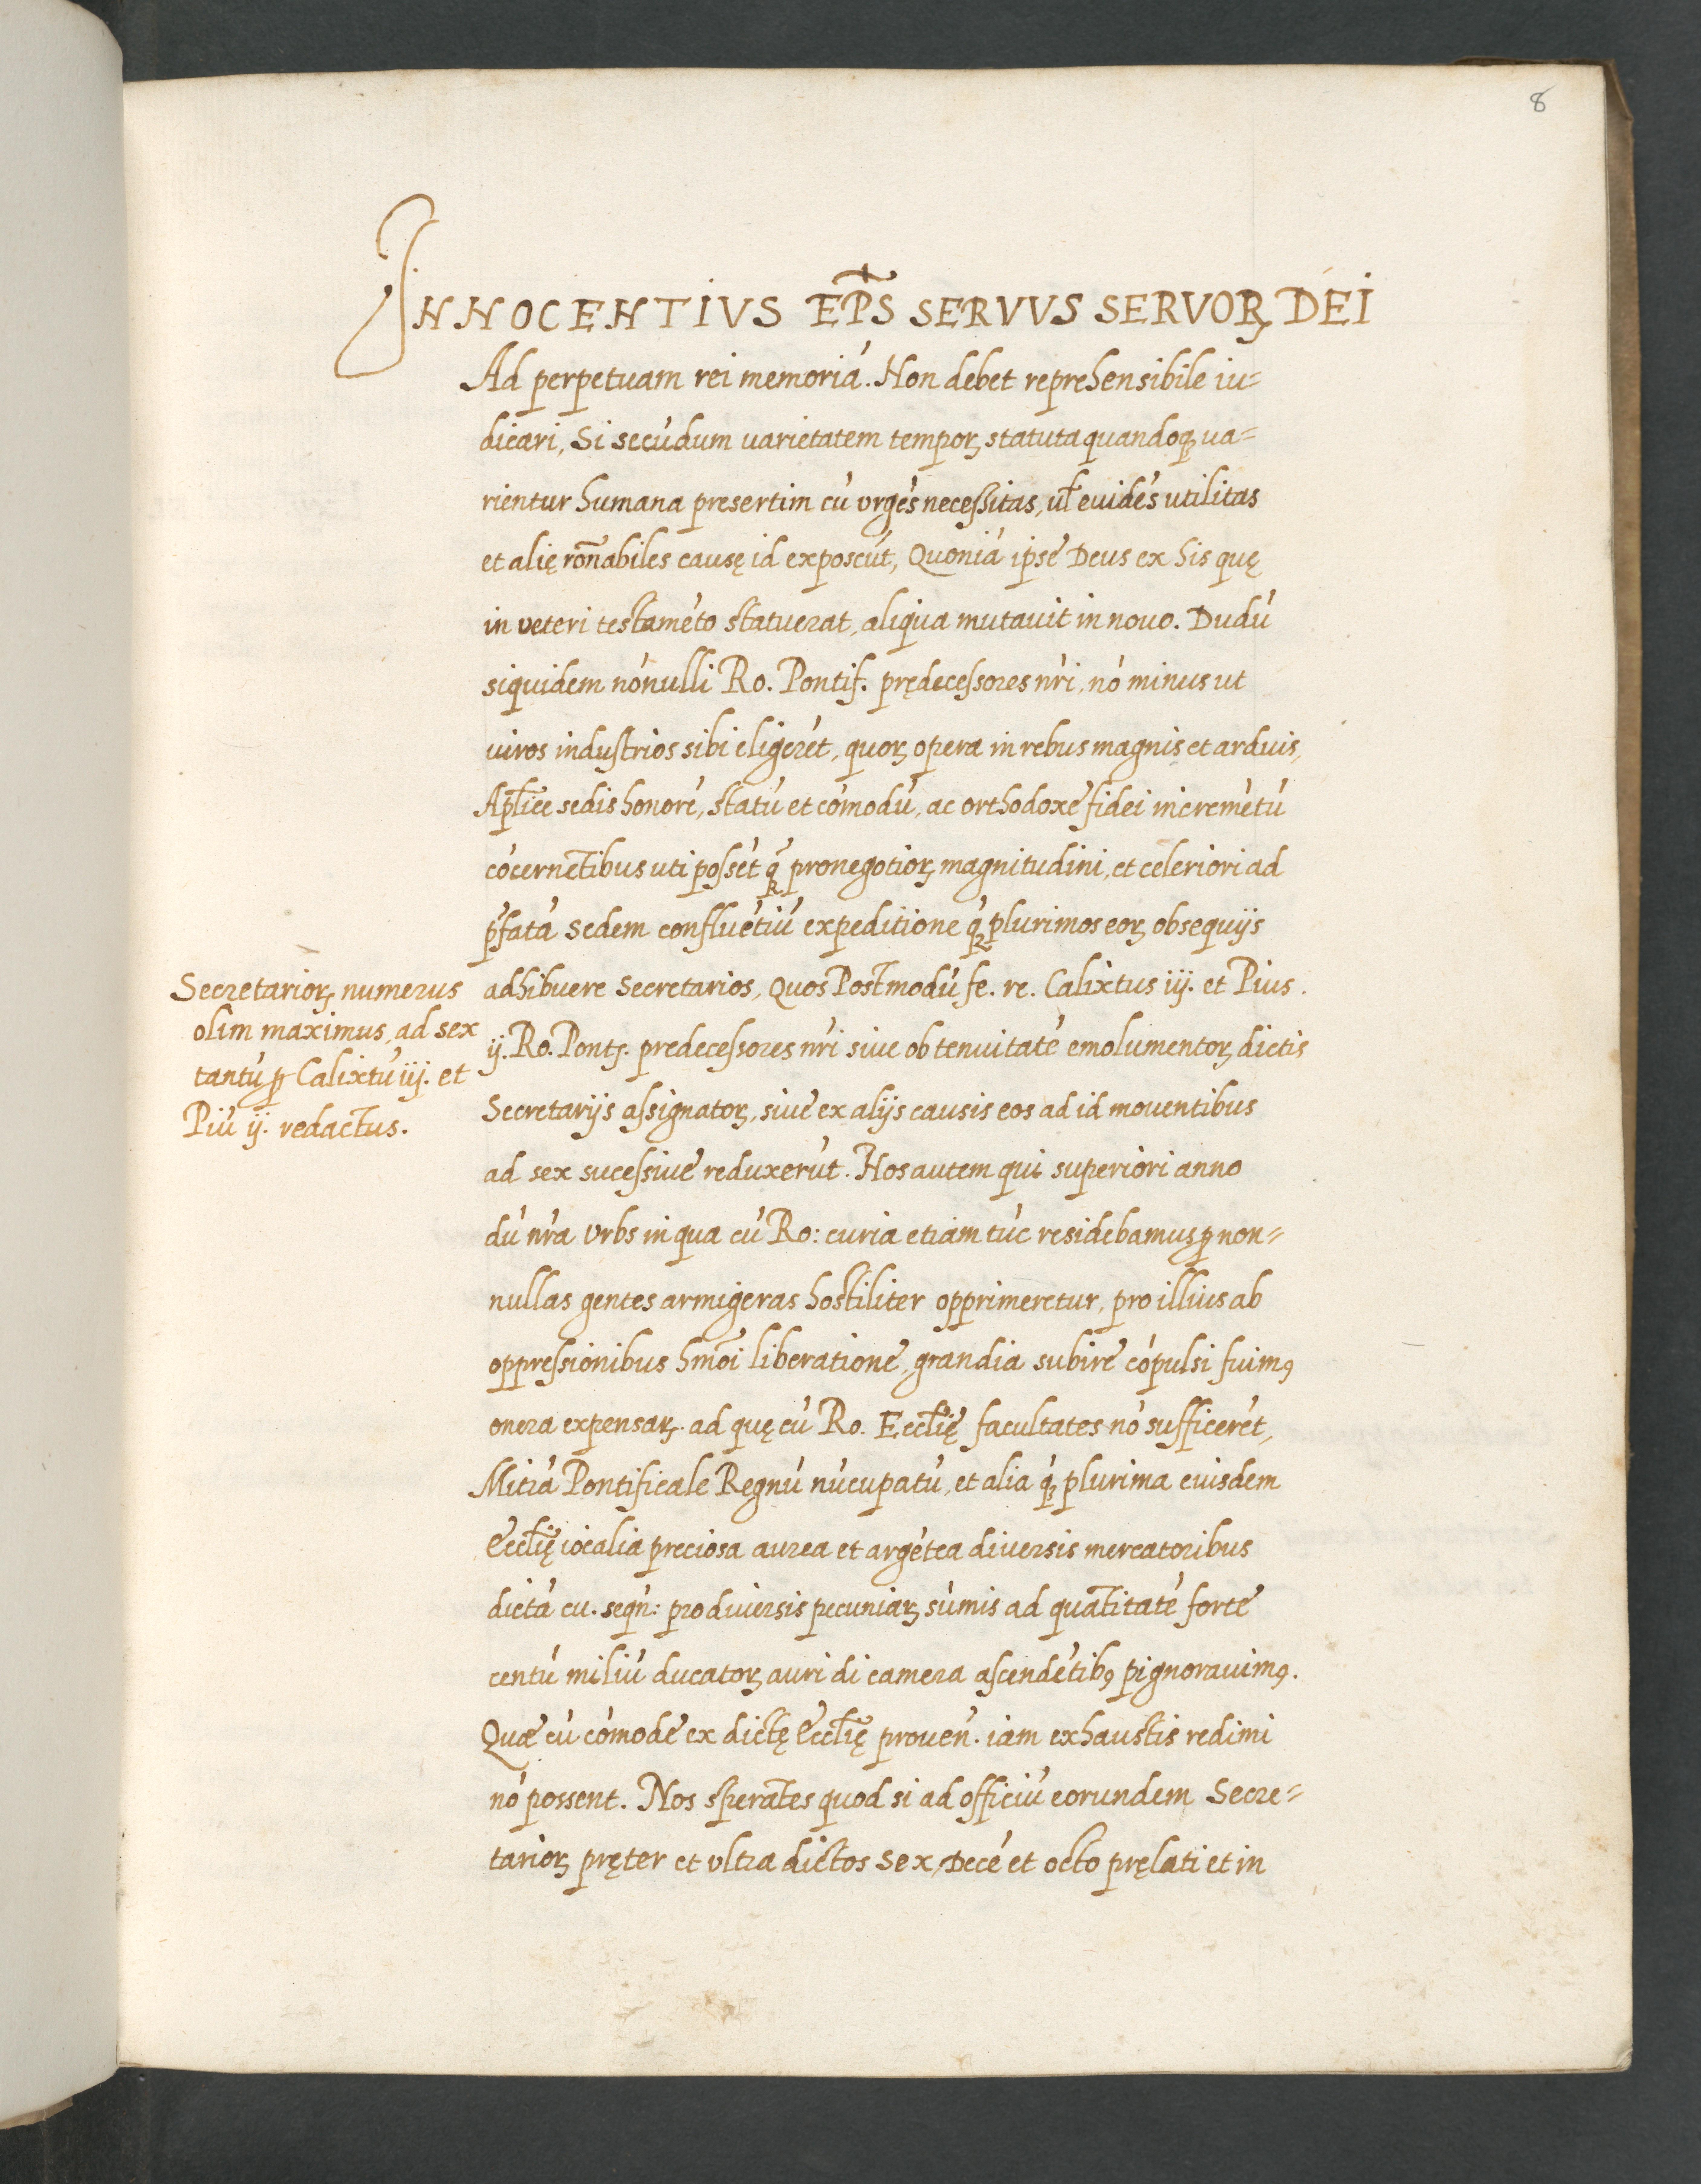 8
INNOCENTIVS EP̃S SERVVS SERVOꝜ DEI
Ad perpetuam rei memoriá. Non debet reprehensibile iu=
dicari, Si secúdum uarietatem tempoꝝ statuta quandoqꝫ ua=
rientur humana presertim cú vrgés necessitas, ul̃ euidés utilitas
et alię roñabiles causę id exposcút, Quoniá ipse Deus ex his quę
in veteri testaméto statuerat, aliqua mutauit in nouo. Dudú
siquidem nónulli Ro. Pontif. prędecessores nr̃i, nó minus ut
uiros industrios sibi eligerét, quoꝝ opera in rebus magnis et arduis,
Apl̃ice sedis honoré, statú et cómodú, ac orthodoxe fidei increm̃etú
cócernẽtibus uti possét q̃ pro negotioꝝ magnitudini, et celeriori ad
p̃fatá sedem confluétiú expeditione qꝫ́ plurimos eoꝝ obsequijs
adhibuere Secretarios, Quos Postmodú fe. re. Calixtus iij. et Pius.
ij. Ro. Pont. predecessores nr̃i siue ob tenuitaté emolumentoꝝ dictis
Secretarijs assignatoꝝ, siue ex alijs causis eos ad id mouentibus
ad sex sucessiue reduxerút. Nos autem qui superiori anno
dú nr̃a Vrbs in qua cú Ro: curia etiam túc residebamus ꝑ non=
nullas gentes armigeras hostiliter opprimeretur, pro illius ab
oppressionibus hmõi liberatione, grandia subire cópulsi fuimꝰ
onera expensaꝝ. ad quę cú Ro. Eccl̃ię facultates nó sufficerét,
Mitrá Pontificale Regnú núcupatú, et alia qꝫ́ plurima eiusdem
Eccl̃ię iocalia preciosa aurea et argétea diuersis mercatoribus
dictá cu. seqń: pro diuersis pecuniaꝝ súmis ad quãtitaté forte
centú miliú ducatoꝝ auri di camera ascendétibꝰ pignorauimꝰ.
Quæ cú cómode ex dictę Eccl̃ię proueñ. iam exhaustis redimi
nó possent. Nos sperãtes quod si ad officiú eorundem Secre=
tarioꝝ pręter et vltra dictos sex, Decé et octo pręlati et in
Secretarioꝝ numerus
olim maximus, ad sex
tantú ꝑ Calixtú iij. et
Piú ij. redactus.